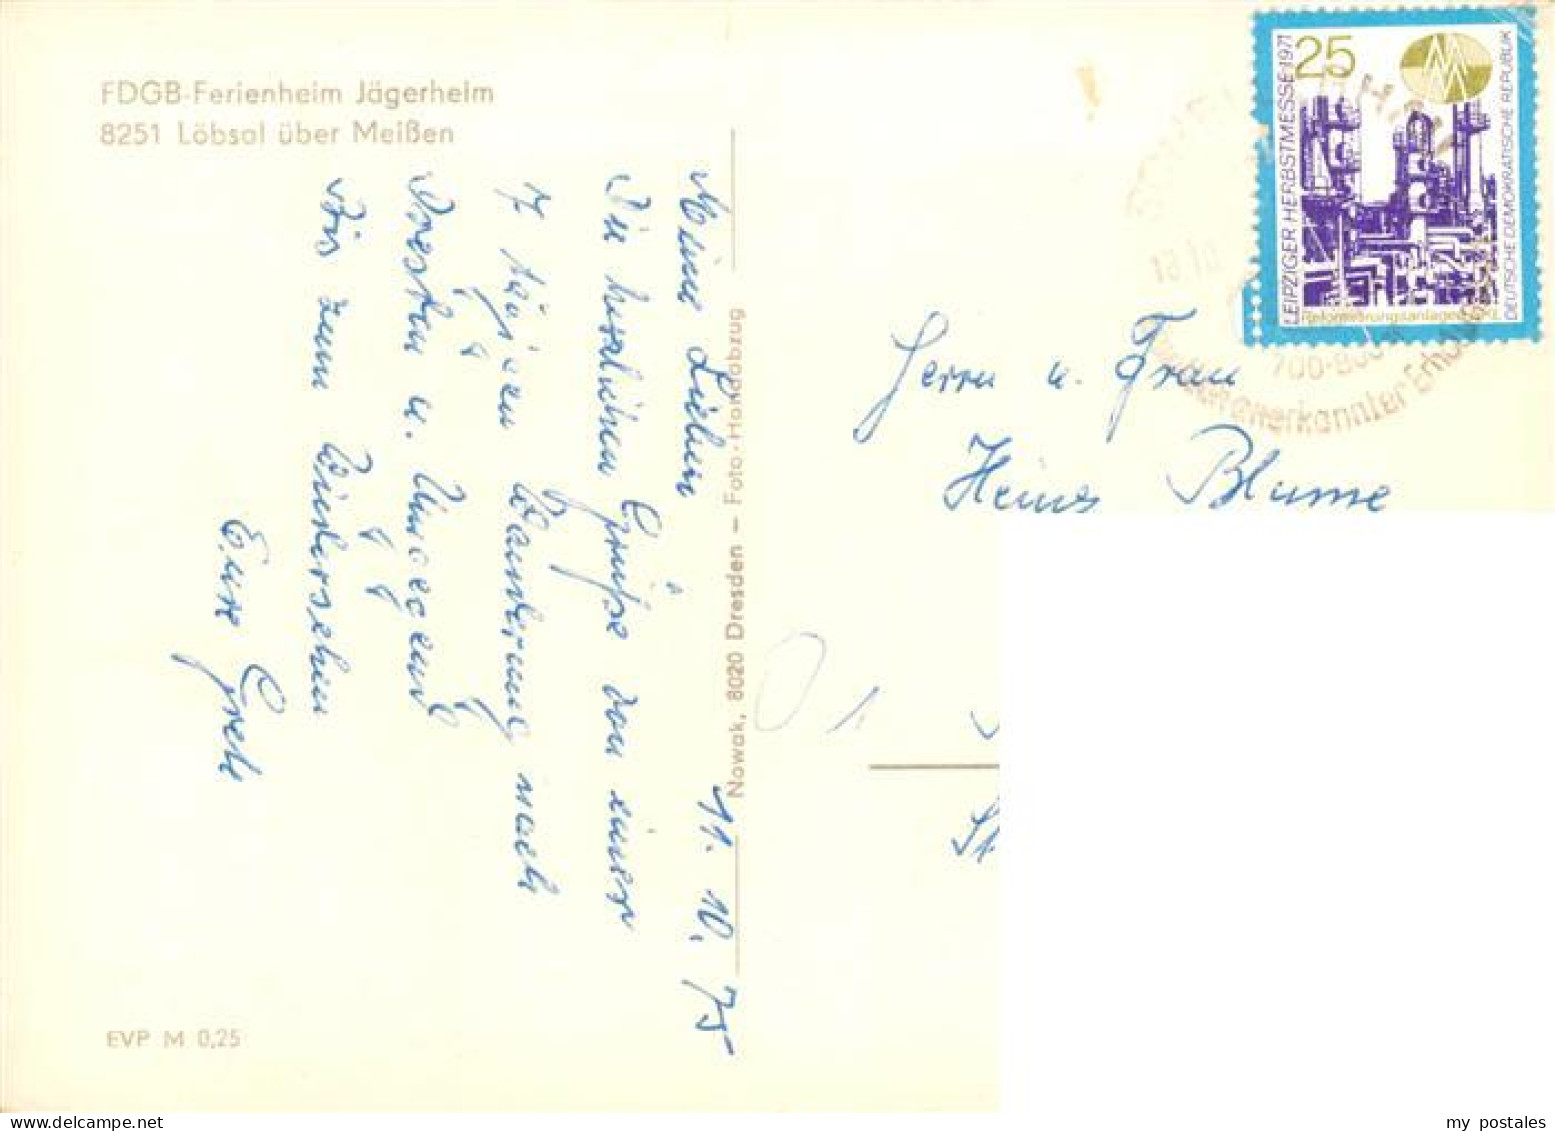 FDGB-Ferienheim Jägerheim
8251 Löbsal über Meißen
11. 10. 75
Meine Lieben
Die herzlichen Grüße von einer
7 tägigen Wanderung nach
Dresden u. Umgegend
Bis zum Wiedersehen
Eure Grete
EVP M 0,25
Nowak, 8020 Dresden – Foto-Handabzug
25
LEIPZIGER HERBSTMESSE 1971
DEUTSCHE DEMOKRATISCHE REPUBLIK
Reformierungsanlagen
700-800
anerkannter Erholungs
Herrn u. Frau
Heinz Blume
St
my postales